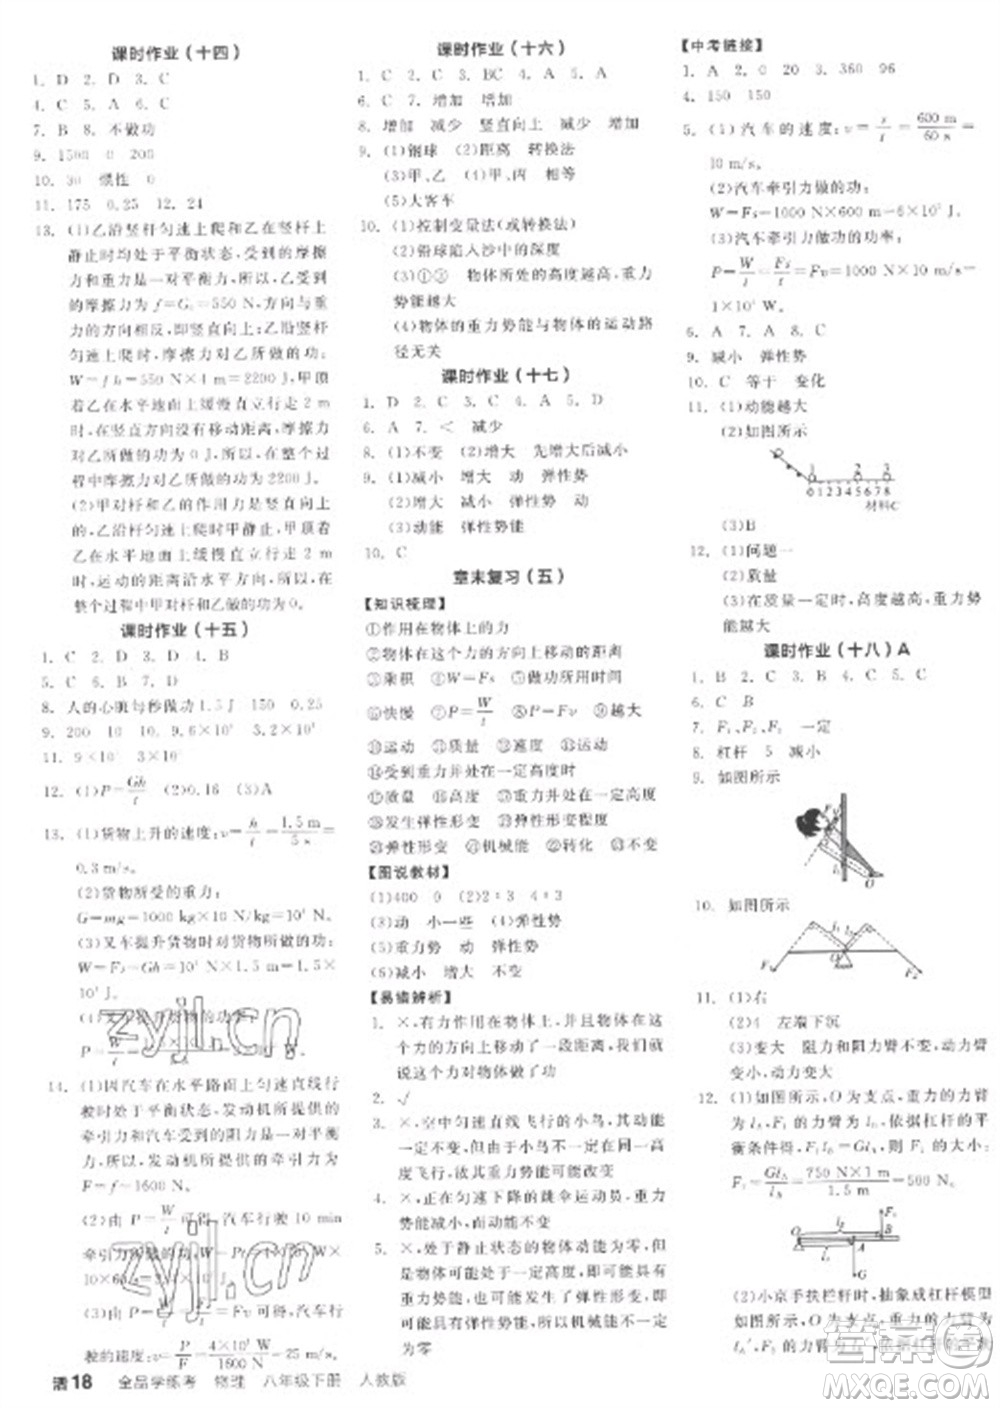 课时作业（十四）
1. D 2. D 3. C
4. C 5. A 6. A
7. B 8. 不做功
9. 1500 0 200
10. 30 惯性 0
11. 175 0.25 12. 24
13. (1)乙沿竖杆匀速上爬和乙在竖杆上
静止时均处于平衡状态,乙受的摩擦
力和重力是一对平衡力,所以乙受到
的摩擦力为f=G乙=550 N,方向与重
力的方向相反,即竖直向上;乙沿竖杆
匀速上爬时,摩擦力对乙所做的功为
W=fh=550 N×4 m=2200 J;
甲在水平地面上缓慢直行走 2 m
时,乙在竖直方向没有移动距离,摩擦
力对乙做的功为0 J,所以在整个过
程中摩擦力对乙做的功为2200 J。
(2)甲对杆和乙的作用力竖直向上,
乙沿杆匀速上爬时甲静止,甲顶着
乙在水平地面上缓慢直行走 2 m
时,运动的距离沿水平方向,所以在
整个过程中甲对杆和乙做的功为0。
课时作业（十五）
1. C 2. D 3. A 4. B
5. C 6. B 7. D
8. 人的心脏每秒做功1.5 J 150 0.25
9. 200 10 10. 9.6×10³
11. 9×10⁵ 3×10³
12. (1)P=Gh/t (2)0.16 (3)A
13. (1)货物上升的速度:v=h/t=1.5 m/5 s=
0.3 m/s。
(2)货物所受的重力:
G=mg=1000 kg×10 N/kg=1×10⁴ N。
(3)叉车提升货物时对货物所做的功:
W=Fs=Gh=1×10⁴ N×1.5 m=1.5×
10⁴ J。
14. (1)因汽车在水平路面上匀速直线行
驶时处于平衡状态,发动机所提供的
牵引力和汽车受到的阻力是一对平衡
力,所以发动机所提供的牵引力为
F=f=1600 N。
(3)由P=W/t=Fs/t=Fv可得,汽车行
驶的速度:v=P/F=4×10⁴ W/1600 N=25 m/s。
课时作业（十六）
1. C 2. C 3. BC 4. A 5. A
6. C 7. 增加 增加
8. 增加 减少 竖直向上 减少 增加
9. (1)钢球 (2)距离 转换法
(3)甲、乙 (4)甲、丙 相等
(5)大客车
10. (1)控制变量法(或转换法)
(2)铅球陷入沙中的深度
(3)①③ 物体所处的高度越高,重力
势能越大
(4)物体的重力势能与物体的运动路
径无关
课时作业（十七）
1. D 2. C 3. C 4. B 5. D
6. A 7. < 减少
8. (1)不变 (2)增大 先增大后减小
9. (1)减小 增大 动 弹性势
(2)增大 减小 弹性势 动
(3)动能 弹性势能
10. C
章末复习（五）
【知识梳理】
①作用在物体上的力
②物体在这个力的方向上移动的距离
③乘积 ④W=Fs ⑤做功所用时间
⑥快慢 ⑦P=W/t ⑧P=Fv ⑨越大
⑩运动 ⑪质量 ⑫速度 ⑬运动
⑭受到重力并处在一定高度时
⑮质量 ⑯高度 ⑰发生弹性形变
⑱发生弹性形变 ⑲弹性形变程度
⑳弹性形变 ㉑机械能 ㉒转化 ㉓不变
【图说教材】
(1)400 0 (2)2∶3 4∶3
(3)动 小一些 (4)弹性势
(5)重力势 动 弹性势
(6)减小 增大 不变
【易错辨析】
1. ×,有力作用在物体上,并且物体在这
个力的方向上移动了一段距离,我们
就说这个力对物体做了功
2. √
3. ×,空中匀速直线飞行的小鸟,其动能
一定不变,但由于小鸟不一定在同一
高度飞行,其重力势能可能改变
4. ×,正在匀速下降的跳伞运动员,重力
势能减小,动能不变
5. ×,处于静止状态的物体动能为零,但
是物体可能处于一定高度,重力势能
可能不为零,物体也可能发生弹性形
变,弹性势能不为零,所以机械能不一
定为零
【中考链接】
1. A 2. 0 20 3. 360 96
4. 150 150
5. (1)汽车的速度:v=s/t=600 m/60 s=
10 m/s。
(2)汽车牵引力做的功:
W=Fs=1000 N×600 m=6×10⁵ J。
(3)汽车牵引力做功的功率:
P=W/t=Fs/t=Fv=1000 N×10 m/s=
1×10⁴ W。
6. A 7. A 8. C
9. 减小 弹性势
10. C 等于 变化
11. (1)动能越大
(2)如图所示
0 1 2 3 4 5 6 7 8
材料C
(3)B
12. (1)问题一
(2)质量
(3)在质量一定时,高度越高,重力势
能越大
课时作业（十八）A
1. B 2. C 3. D 4. C 5. C
6. C B
7. F₁、F₂、F₃ 一定
8. 杠杆 5 减小
9. 如图所示
O
10. 如图所示
F₁ l₁ l₂ O F₂
11. (1)右
(2)4 左端下沉
(3)变大 阻力和阻力臂不变,动力臂
变小,动力变大
12. (1)如图所示,以O为支点,重力的力臂
为lA,F₁的力臂为lB,依据杠杆的平
衡条件得,F₁lB=GlA,则F₁的大小:
F₁=GlA/lB=750 N×1 m/1.5 m=500 N。
F₁ l₂ O B A l₁ G
(2)小京手扶栏杆时,抽象成杠杆模型
活18 全品学练考 物理 八年级下册 人教版
zyjl.cn
zyjl.cn
答案圈
MXQE.COM